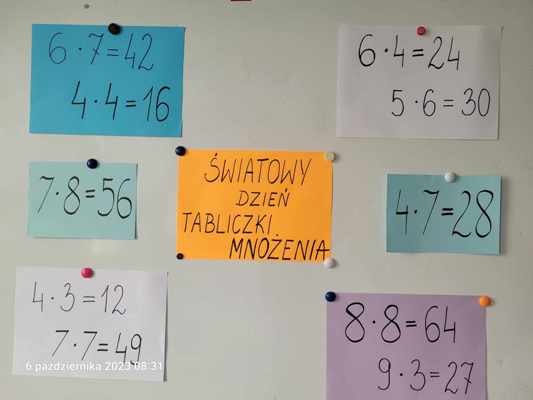 6·7=42
4·4=16
6·4=24
5·6=30
7·8=56
ŚWIATOWY
DZIEŃ
TABLICZKI
MNOŻENIA
4·7=28
4·3=12
7·7=49
8·8=64
9·3=27
6 października 2023 08:31